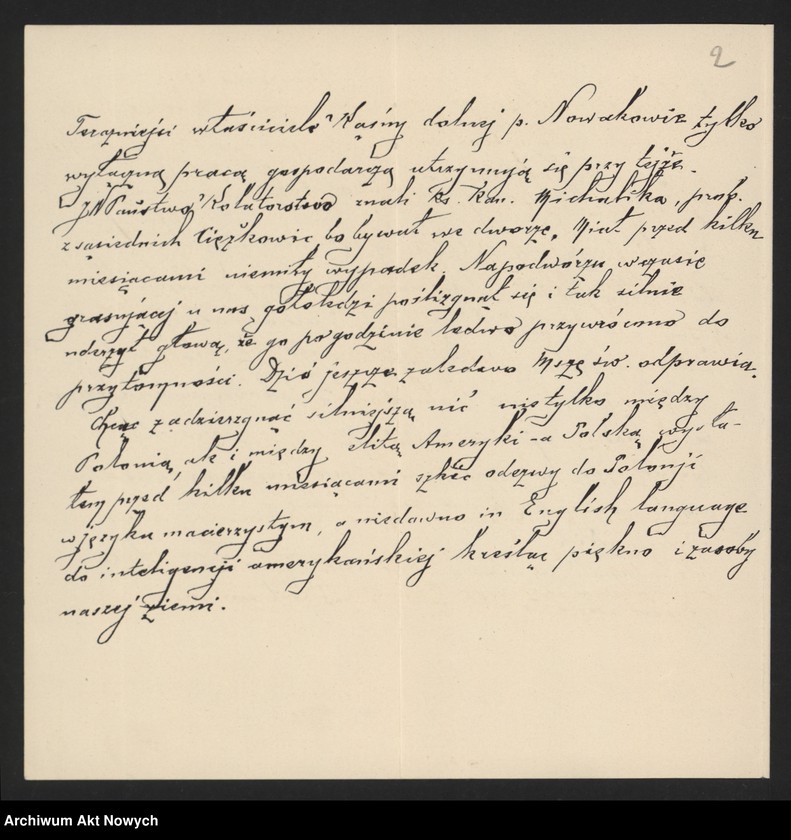 2
Teraźniejsi właściciele Kąśny dolnej p. Nowakowie tylko
wytężną pracą gospodarzą utrzymują się przy tejże.
Państwo Kolatorstwo znali ks. Kan. Michalika, prob.
z sąsiednich Ciężkowic bo bywał we dworze. Miał przed kilku
miesiącami niemiły wypadek. Na podwórzu w czasie
grasującej u nas gołoledzi poślizgnął się i tak silnie
uderzył głową, że go po godzinie ledwo przywrócono do
przytomności. Dziś jeszcze zaledwo Mszę św. odprawia.
Chcąc zadzierzgnąć silniejszą nić nietylko między
Polonią, ale i między elitą Ameryki - a Polską wysła-
łem przed kilku miesiącami szkic odezwy do Polonji
w języku macierzystym, a niedawno in English language
do inteligencji amerykańskiej kreśląc piękno i zasoby
naszej ziemi.
Archiwum Akt Nowych